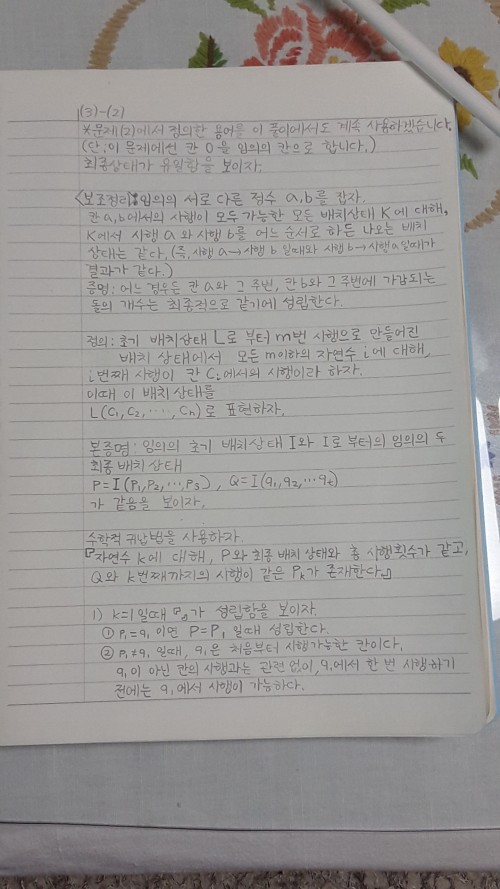 (3)-(2)
*문제(2)에서 정의한 용어를 이 풀이에서도 계속 사용하겠습니다.
(단, 이 문제에선 칸 0을 임의의 칸으로 합니다.)
최종상태가 유일함을 보이자.
<보조정리> 임의의 서로 다른 정수 a, b를 잡자.
칸 a, b에서의 시행이 모두 가능한 모든 배치상태 K에 대해,
K에서 시행 a와 시행 b를 어느 순서로 하든 나오는 배치
상태는 같다. (즉, 시행 a → 시행 b 일때와 시행 b → 시행 a 일때가
결과가 같다.)
증명: 어느 경우든 칸 a와 그 주변, 칸 b와 그 주변에 가감되는
돌의 개수는 최종적으로 같기에 성립한다.
정의: 초기 배치상태 L로 부터 m번 시행으로 만들어진
배치 상태에서 모든 m이하의 자연수 i에 대해,
i번째 시행이 칸 Ci에서의 시행이라 하자.
이때 이 배치 상태를
L(C1, C2, ..., Cn)로 표현하자.
본증명: 임의의 초기 배치상태 I와 I로부터의 임의의 두
최종 배치상태
P=I(P1, P2, ..., P3), Q=I(q1, q2, ... qt)
가 같음을 보이자.
수학적 귀납법을 사용하자.
『자연수 k에 대해, P와 최종 배치상태와 총 시행횟수가 같고,
Q와 k번째까지의 시행이 같은 Pk가 존재한다.』
1) k=1일때 『』가 성립함을 보이자.
① P1=q1 이면 P=P1 일때 성립한다.
② P1≠q1 일때, q1은 처음부터 시행가능한 칸이다.
q1이 아닌 칸의 시행과는 관련 없이, q1에서 한 번 시행하기
전에는 q1에서 시행이 가능하다.